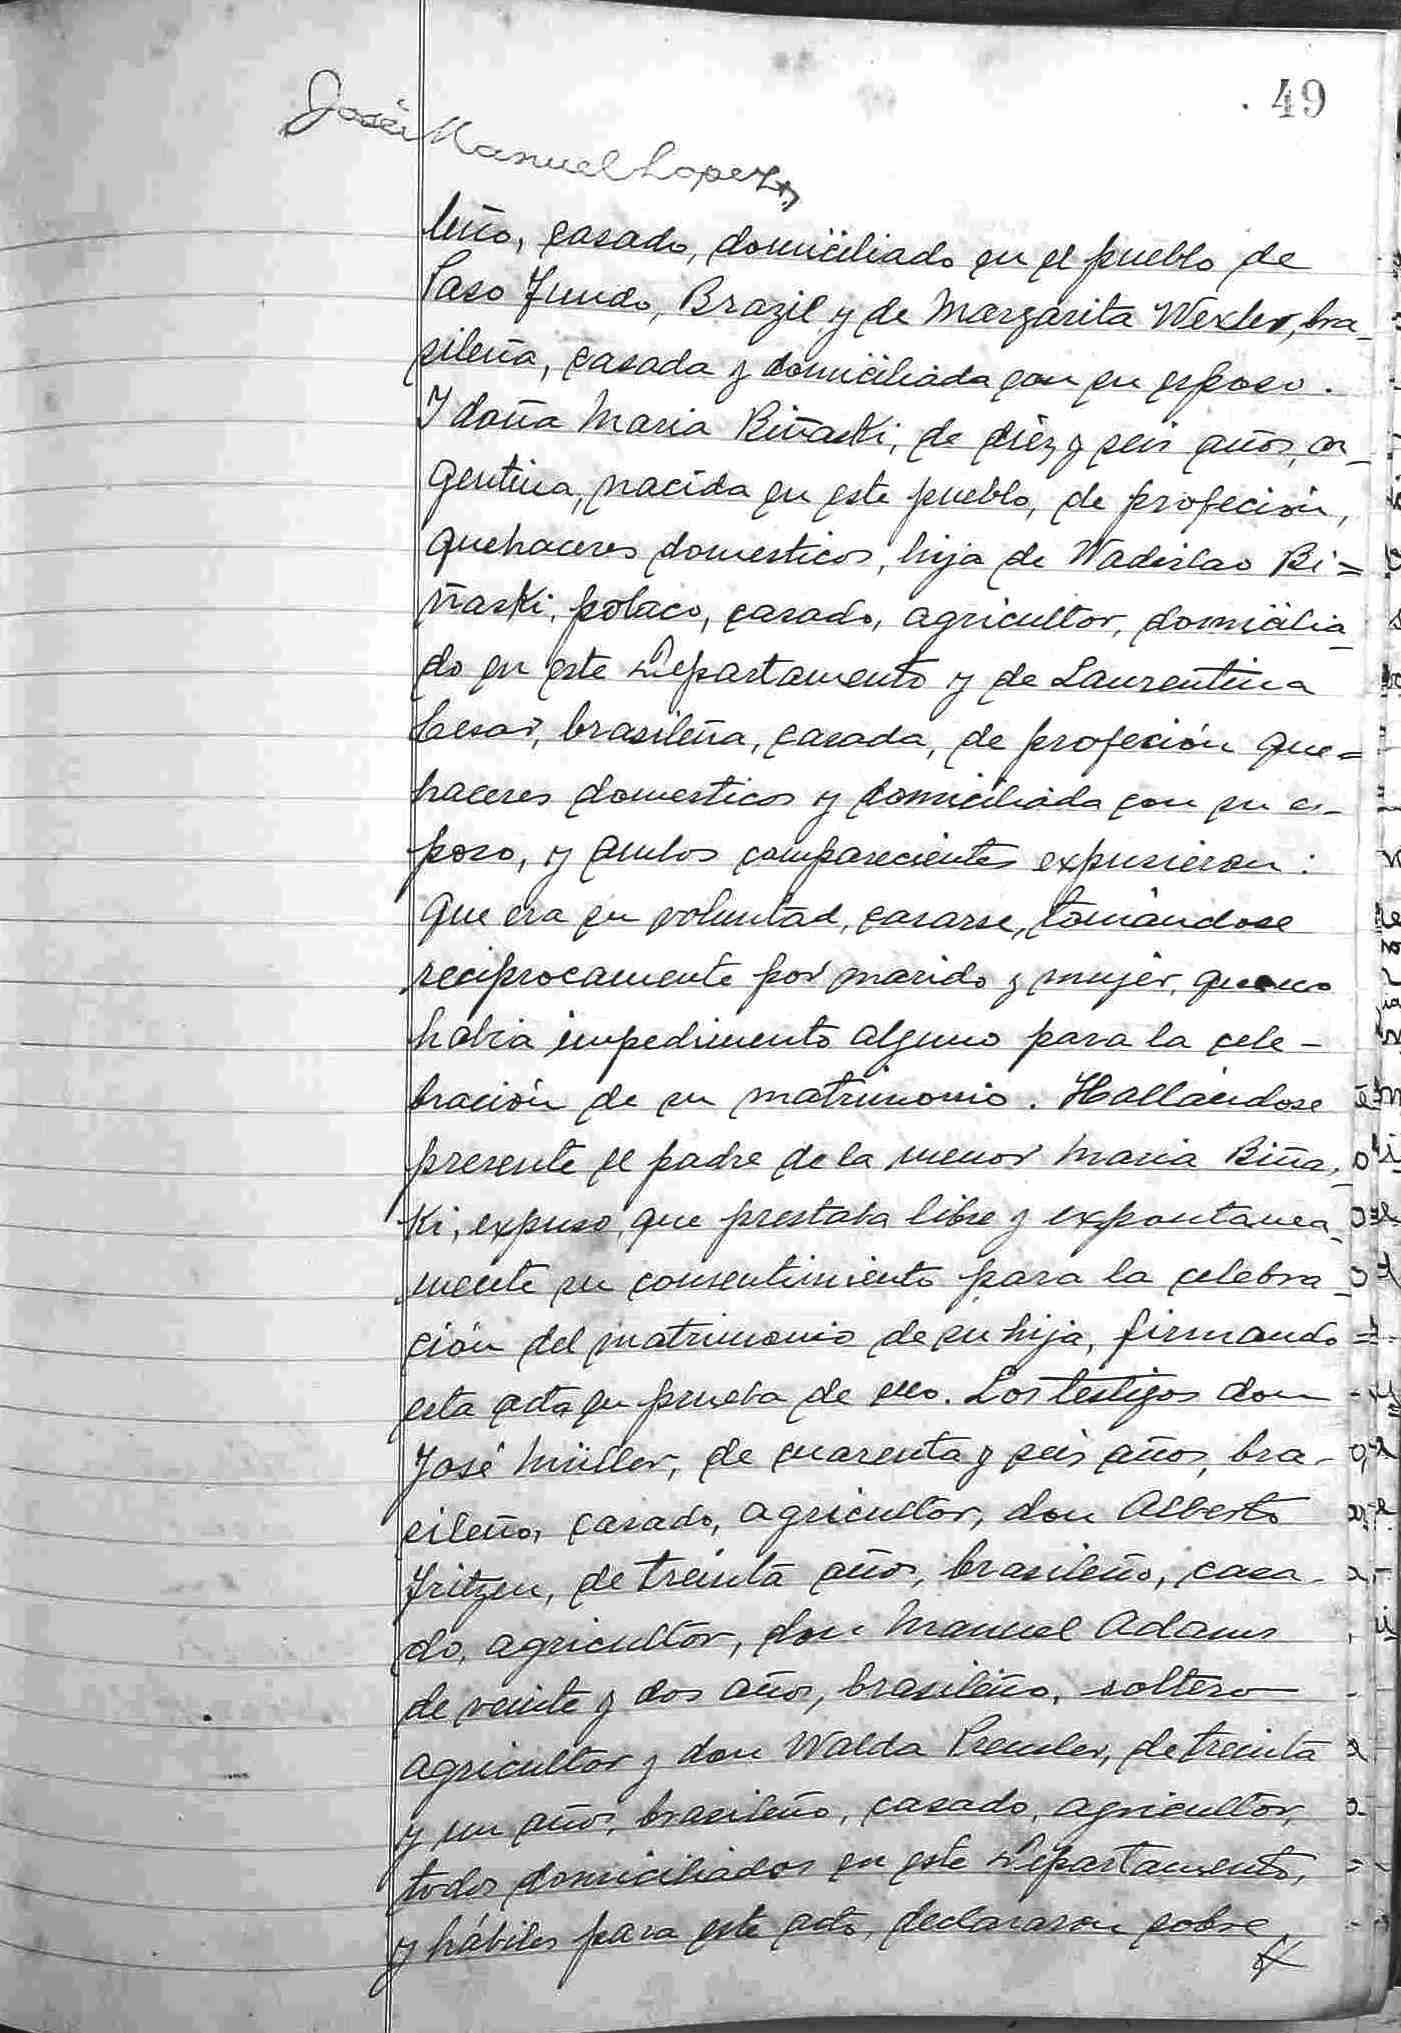 49
José Manuel Lopez
leño, casado, domiciliado en el pueblo de
Paso Fundo, Brazil y de Margarita Wexler, bra_
sileña, casada y domiciliada con su esposo.
Y doña Maria Biñaski, de diéz y seis años, ar_
gentina, nacida en este pueblo, de profeción,
quehaceres domesticos, hija de Wadislao Bi=
ñaski, polaco, casado, agricultor, domicilia_
do en este Departamento y de Laurentina
Cesar, brasileña, casada, de profeción que=
haceres domesticos y domiciliada con su es_
poso, y ambos comparecientes expusieron:
Que era su voluntad, casarse, tomándose
reciprocamente por marido y mujer, que no
habia impedimento alguno para la cele_
bración de su matrimonio. Hallándose
presente el padre de la menor Maria Biñas_
Ki, expuso que prestaba libre y expontanea_
mente su consentimiento para la celebra_
ción del matrimonio de su hija, firmando
esta acta en prueba de ello. Los testigos don
José Müller, de cuarenta y seis años, bra_
sileño, casado, agricultor, don Alberto
Fritzen, de treinta años, brasileño, casa_
do, agricultor, don Manuel Adams
de veinte y dos años, brasileño, soltero
agricultor y don Walda, de treinta
y un años, brasileño, casado, agricultor,
todos domiciliados en este Departamento,
y hábiles para este acto, declararon sobre